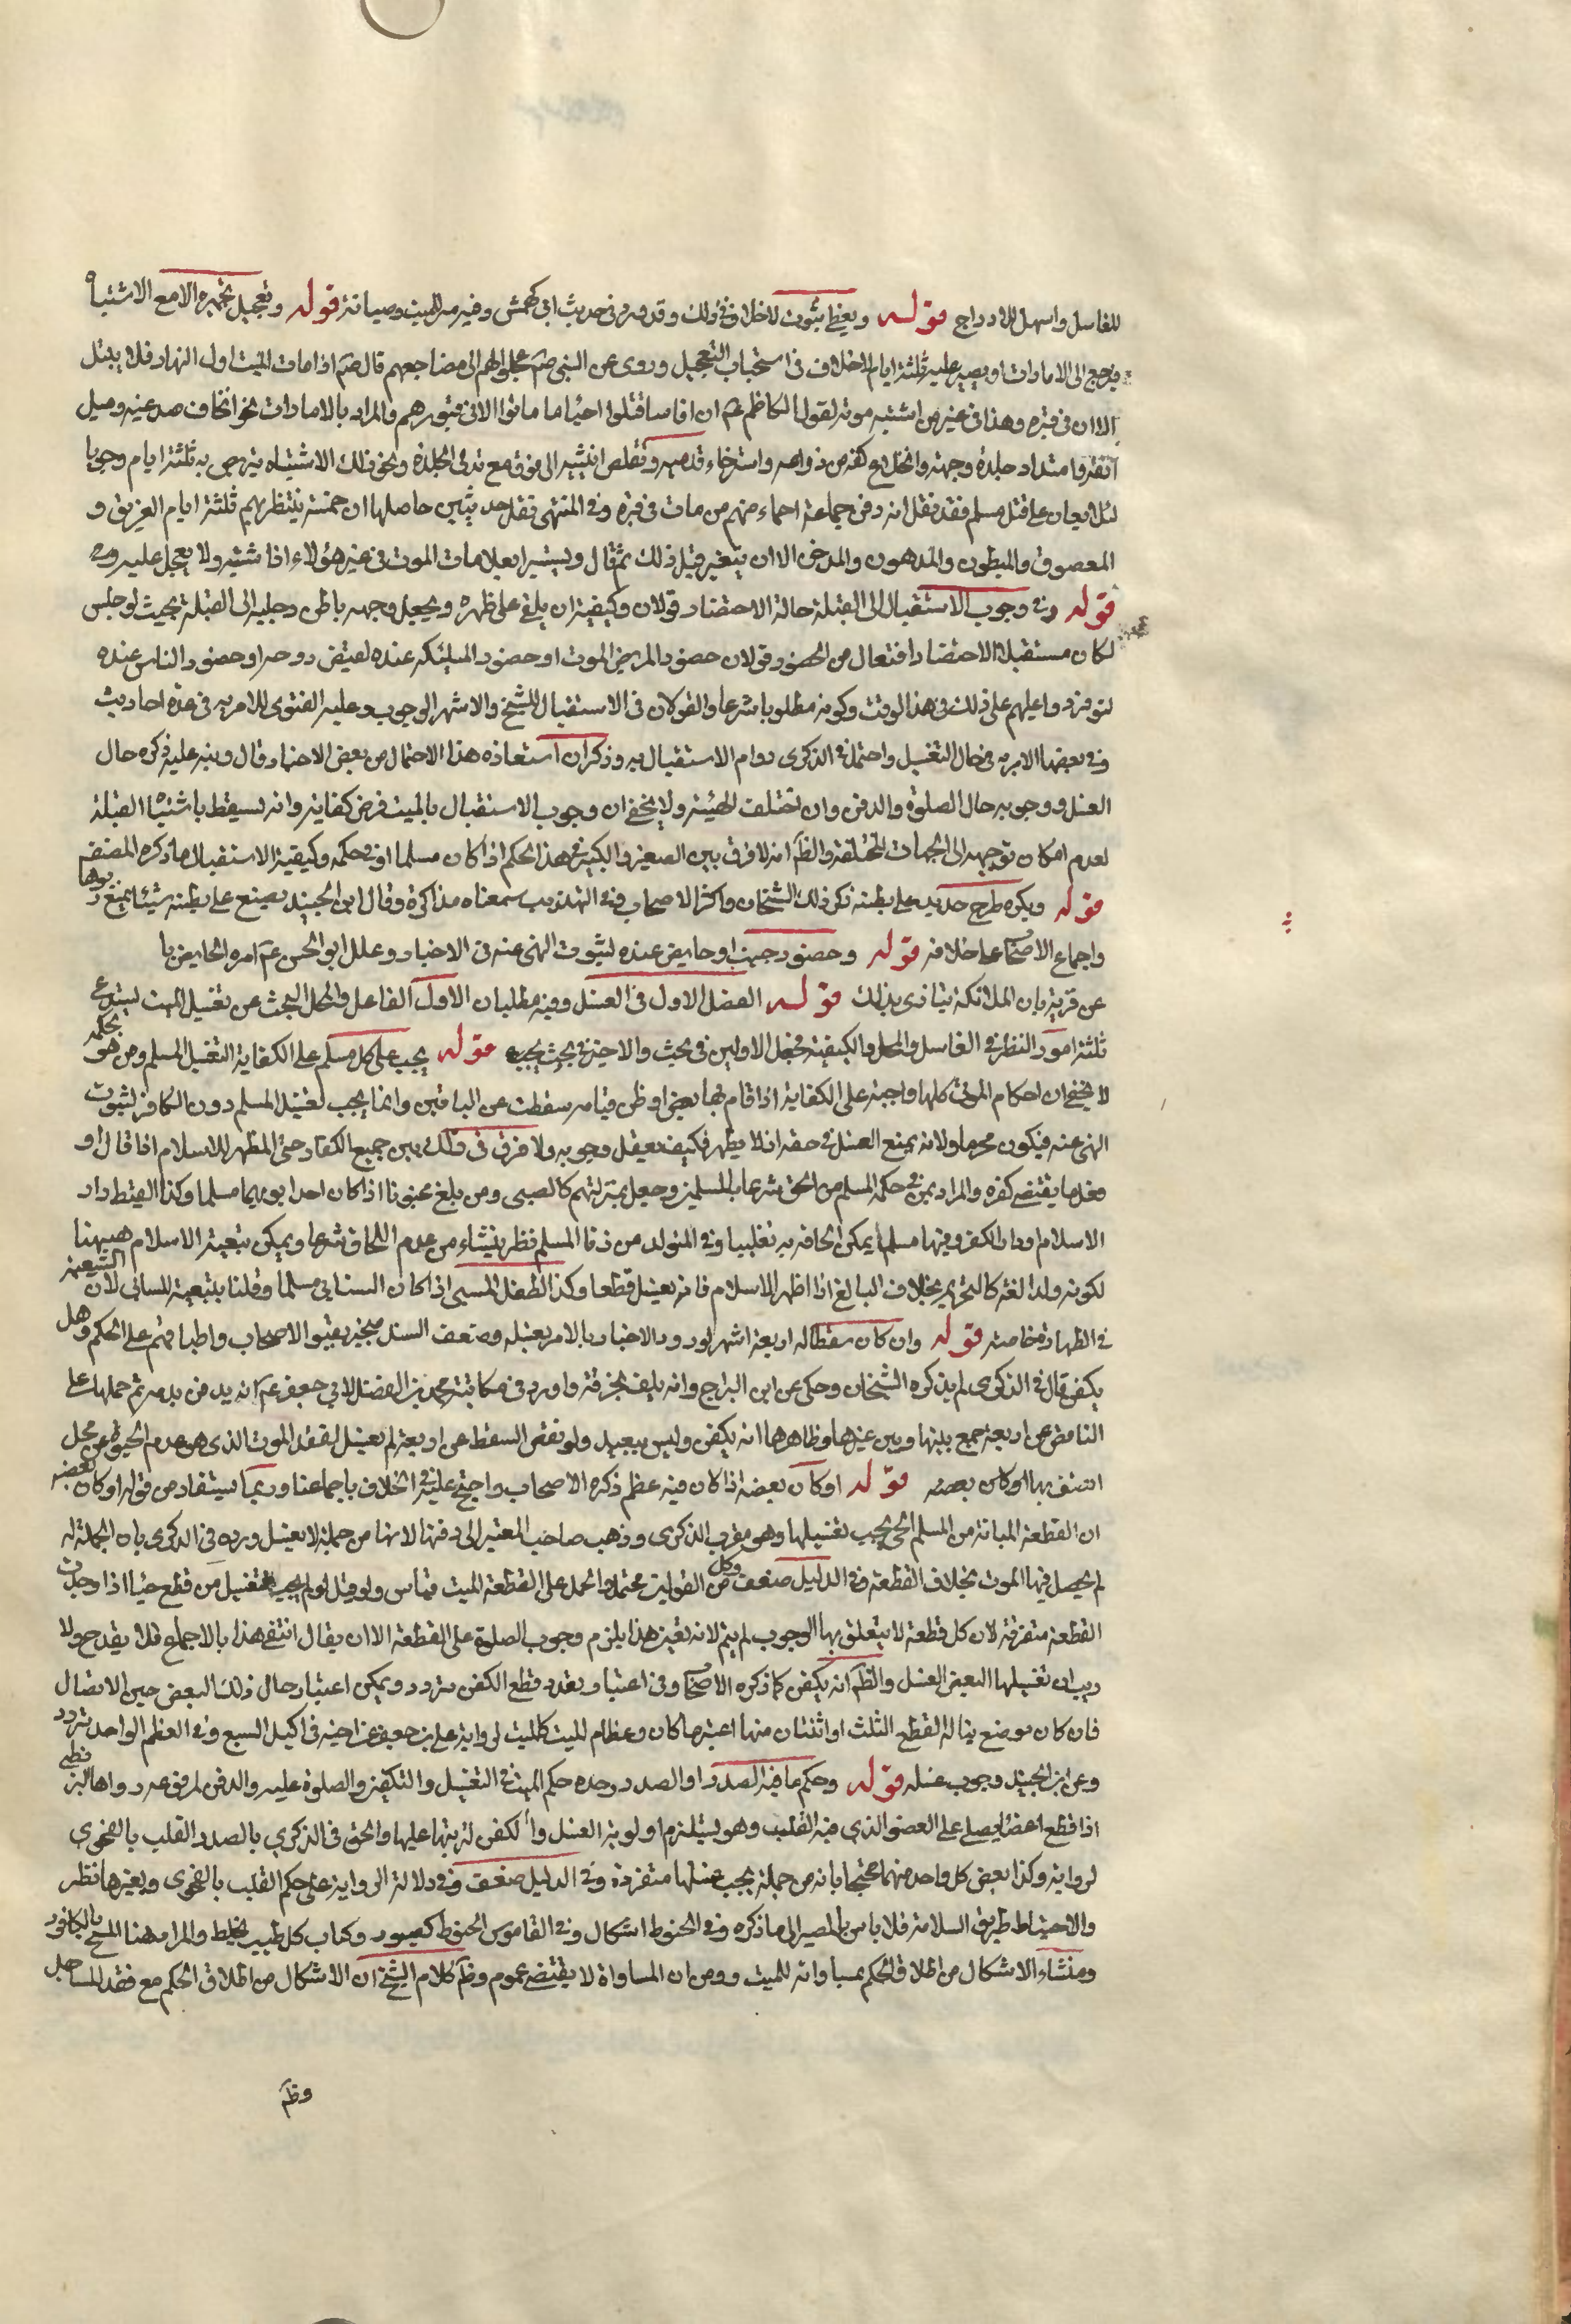 للغاسل واسهل للادراج قوله ويغطى بثوب لا خلاف في ذلك وقد ورد في حديث ابي كهمش وفيه ستر للميت وصيانة قوله وتعجيل تجهيزه الا مع الاشتباه
فيرجع الى الامارات او يصبر عليه ثلثة ايام لا خلاف في استحباب التعجيل وروى عن النبي صم عجلوا بهم الى مضاجعهم قال صم اذا مات الميت اول النهار فلا يقيل
الا في قبره وهذا في غير من اشتبه موته لقول الكاظم عم ان اناسا قتلوا احياء ما ماتوا الا في قبورهم والمراد بالامارات نحو انخساف صدغيه وميل
انفه وامتداد جلدة وجهه وانخلاع كفه من ذراعه واسترخاء قدميه وتقلص انثييه الى فوق مع تدلي الجلدة ونحو ذلك الاشتباه يتربص به ثلثة ايام وجوبا
لئلا يعان على قتل مسلم فقد نقل انه دفن جماعة احياء منهم من مات في قبره وفي المنتهى نقل حديثين حاصلها ان خمسة ينتظر بهم ثلثة ايام الغريق و
المصعوق والمبطون والمهدوم والمدخن الا ان يتغير قبل ذلك ثم قال ويستبرا بعلامات الموت في غير هؤلاء اذا اشتبه ولا يعجل عليه
قوله وفي وجوب الاستقبال الى القبلة حالة الاحتضار قولان وكيفيته ان يلقى على ظهره ويجعل وجهه باطن رجليه الى القبلة بحيث لو جلس
لكان مستقبلا الاحتضار افتعال من الحضور قولان حضور المريض الموت او حضور الملئكة عنده لقبض روحه او حضور الناس عنده
لتوفرد واعليهم على ذلك في هذا الوقت وكونه مطلوبا شرعا والقولان في الاستقبال للشيخ والاشهر الوجوب وعليه الفتوى للامر به في عدة احاديث
وفي بعضها الامر به في حال التغسيل واحتمل في الذكرى دوام الاستقبال به وذكر ان استفاده هذا الاحتمال من بعض الاخبار قال وينبه عليه ذكره حال
الغسل ووجوبه حال الصلوة والدفن وان تختلف الهيئة ولا يخفى ان وجوب الاستقبال بالميت فرض كفاية وانه يسقط باشتباه القبلة
لعدم امكان توجيهه الى الجهات المختلفة والظ انه لا فرق بين الصغير والكبير في هذا الحكم اذا كان مسلما او في حكمه وكيفية الاستقبال ما ذكره المصنف
قوله ويكره طرح حديد على بطنه ذكر ذلك الشيخان واكثر الاصحاب وفي التهذيب سمعناه مذاكرة وقال ابن الجنيد يضع على بطنه شيئا يمنع ربوها
واجماع الاصحاب على خلافه قوله وحضور جنب او حايض عنده لثبوت النهي عنه في الاخبار وعلل ابو الحسن عم امره الحايض با
عن قربه بان الملائكة يتاذى بذلك قوله الفصل الاول في الغسل وفيه مطلبان الاول الفاعل والمحل البحث عن تغسيل الميت يستدعي
ثلثة امور النظر في الغاسل والمحل والكيفية فجعل الاولين في بحث والاخير في بحث قوله يجب على كل مسلم على الكفاية التغسيل المسلم ومن هو بحكمه
لا يخفى ان احكام الموتى كلها واجبة على الكفاية اذا قام بها بعض او ظن قيامه سقطت عن الباقين وانما يجب لغسل المسلم دون الكافر لثبوت
النهي عنه فيكون محرما ولانه يمنع الغسل في حقه اذ لا يطهر فكيف يعقل وجوبه ولا فرق في ذلك بين جميع الكفار حتى المظهر للاسلام اذا قال او
فعل ما يقتضي كفره والمراد بمن في حكم المسلم من الحق شرعا بالمسلمين وجعل بمنزلتهم كالصبي ومن بلغ مجنونا اذا كان احد ابويهما مسلما وكذا لقيط دار
الاسلام او دار الكفر وفيها مسلم يمكن الحاقه به تغليبا وفي المتولد من زنا المسلم نظر ينشاء من عدم اللحاق شرعا ويمكن تبعية الاسلام هيهنا
لكونه ولدا لغة كالتحريم بخلاف البالغ اذا اظهر الاسلام فانه يغسل قطعا وكذا الطفل المسبي اذا كان السابي مسلما وقلنا بتبعيته للسابي لان التبعية
في الطهارة خاصة قوله وان كان سقطا له اربعة اشهر لورود الاخبار بالامر بغسله وضعف السند منجبر بقبول الاصحاب واطباقهم على الحكم وهل
يكفن قال في الذكرى لم يذكره الشيخان وحكى عن ابن البراج وانه يلف بخرقة واورد في مكاتبة محمد بن الفضل لابي جعفر عم انه يدفن بدمه ثم حملها على
الناقص عن اربعة جمع بينها وبين غيرها وظاهرها انه يكفن وليس ببعيد ولو نقص السقط عن اربعة لم يغسل لفقد الموت الذي هو عدم الحيوة عن محل
اتصف بها او كان بعضه قوله او كان بعضه اذا كان فيه عظم ذكره الاصحاب واحتج عليه في الخلاف باجماعنا وربما يستفاد من قوله او كان بعضه
ان القطعة المبانة من المسلم الحي يجب تغسيلها وهو مقرب الذكرى وذهب صاحب المعتبر الى دفنها لانها من جملة لا يغسل ورده في الذكرى بان الجملة له
لم يحصل فيها الموت بخلاف القطعة وفي الدليل ضعف وكل من القولين محتمل والحمل على القطعة الميت قياس ولو قيل لو لم يجب تغسيل من قطع حيا اذا وجدت
القطعة متفرقة لان كل قطعة لا يتعلق بها الوجوب لم يتم لانه بغير هذا يلزم وجوب الصلوة على القطعة الا ان يقال انتفى هذا بالاجماع فلا يقدح ولا
ريب ان تغسيلها البعض الغسل والظ انه يكفن كما ذكره الاصحاب وفي اعتبار تعدد قطع الكفن تردد ويمكن اعتبار حال ذلك البعض حين الاتصال
فان كان موضع يناله القطع الثلث او اثنتان منها اعتبر ما كان وعظام الميت كالميت لرواية علي بن جعفر عن اخيه في اكيل السبع وفي العظم الواحد تردد
وعن ابن الجنيد وجوب غسله قوله وحكم ما فيه الصدر او الصدر وحده حكم الميت في التغسيل والتكفين والصلوة عليه والدفن لمرفوعة رواها البزنطي
اذا قطع اعضاء يصلى على العضو الذي فيه القلب وهو يستلزم اولوية الغسل والكفن لترتبها عليها والحق في الذكرى بالصدر القلب بالفحوى
لرواية وكذا بعض كل واحد منهما محتجا بانه من جملة يجب غسلها منفردة وفي الدليل ضعف وفي دلالة الرواية على حكم القلب بالفحوى وبغيرها نظر
والاحتياط طريق السلامة فلا باس بالمصير الى ما ذكره وفي الحنوط اشكال وفي القاموس الحنوط كصبور وكتاب كل طيب يخلط والمراد هنا المسح بالكافور
ومنشاء الاشكال من اطلاق الحكم بمساواته للميت ومن ان المساواة لا يقتضي عموم وظ كلام الشيخ ان الاشكال من اطلاق الحكم مع فقد المساجد
وظ